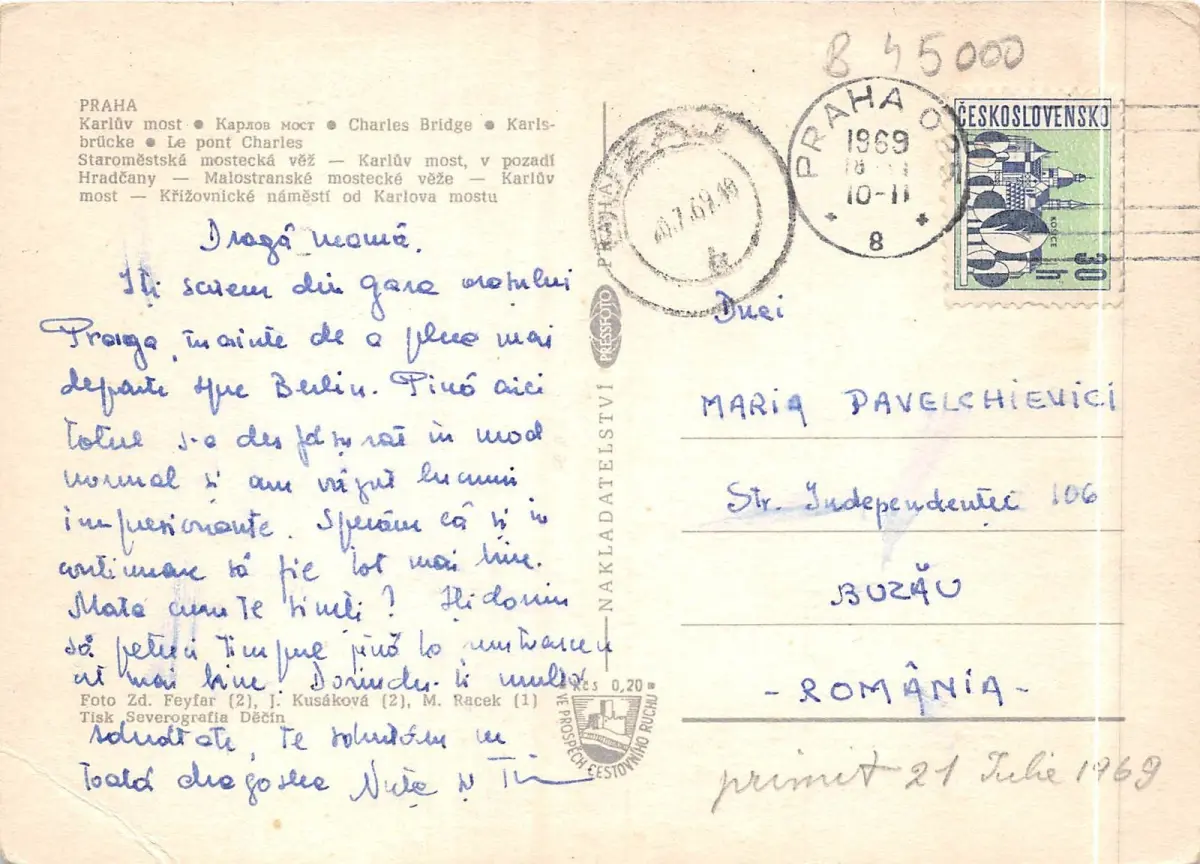 8 45000
PRAHA
Karlův most ● Карлов мост ● Charles Bridge ● Karls-
brücke ● Le pont Charles
Staroměstská mostecká věž — Karlův most, v pozadí
Hradčany — Malostranské mostecké věže — Karlův
most — Křižovnické náměstí od Karlova mostu
Dragă mamă,
Iți scriem din gara orașului
Praga, înainte de a pleca mai
departe spre Berlin. Pînă aici
totul s-a desfășurat în mod
normal și am văzut lucruri
impresionante. Sperăm că și în
continuare să fie tot mai bine.
Mata cum te simți? Iți dorim
să petreci timpul pînă la
cît mai bine. Dorindu-ți multă
sănătate, te sărutăm cu
toată dragostea Nuța și
Foto Zd. Feyfar (2), J. Kusáková (2), M. Racek (1)
Tisk Severografia Děčín
NAKLADATELSTVÍ PRESSFOTO PRAHA
Kčs 0,20
VE PROSPĚCH CESTOVNÍHO RUCHU
BUZĂU
.7.69.
PRAHA
1969
10-11
8
ČESKOSLOVENSKO
30 h
Dnei
MARIA PAVELCHIEVICI
Str. Independenței 106
BUZĂU
- ROMÂNIA -
primit 21 Iulie 1969